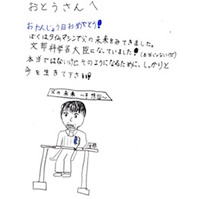 おとうさんへ
おたんじょう日おめでとう!
ぼくはタイムマシンで父の未来をみてきました。
文部科学省大臣になっていました!
本当ではないけどそのようになるために、しっかりと
今を生きて下さい!!!
父の未来